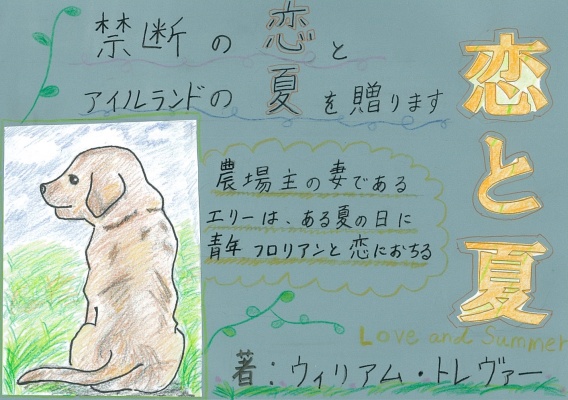 禁断の恋と
アイルランドの夏を贈ります
恋と夏
農場主の妻である
エリーは、ある夏の日に
青年フロリアンと恋におちる
Love and Summer
著：ウィリアム・トレヴァー